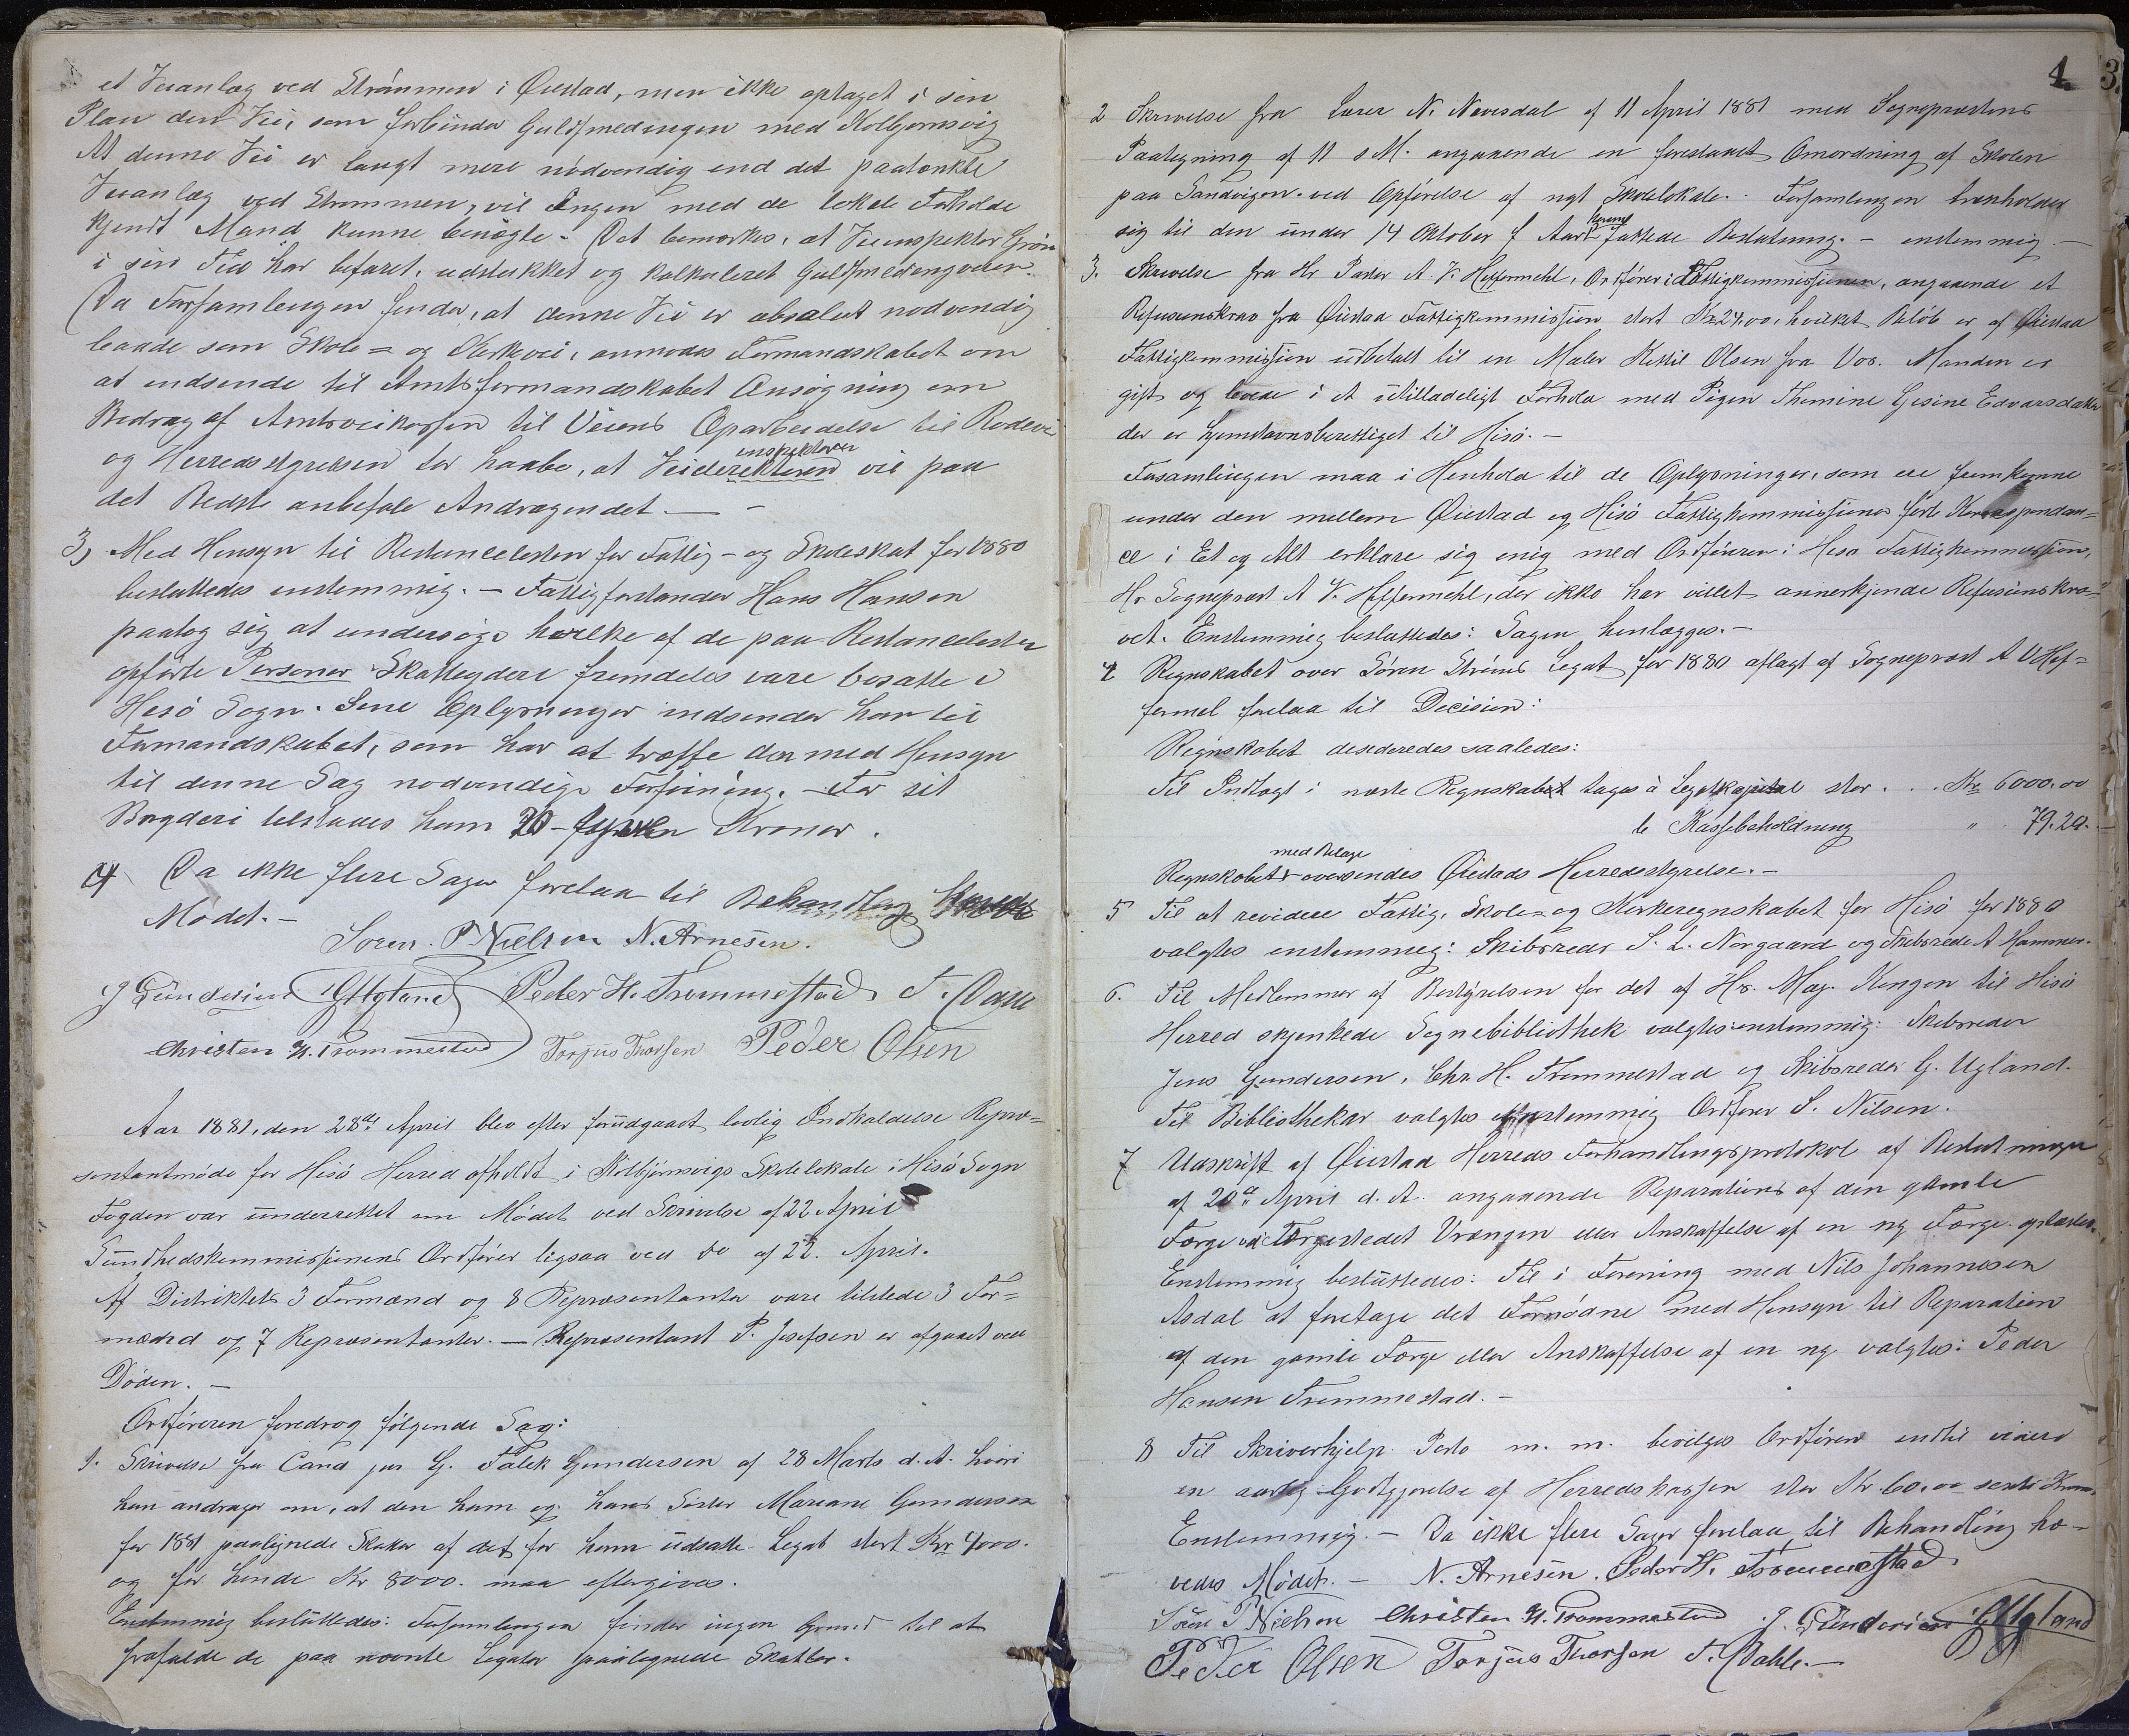 et Veianlæg ved Strömmen i Öiestad, men ikke optaget i sin
Plan den Vei, som forbinder Guldsmedengen med Kolbjornsvig
At denne Vei er langt mere nödvendig end det paatænkte
Veianlæg ved Strömmen, vil Ingen med de lokale Forholde
kjendt Mand kunne benægte. Det bemærkes, at Veiinspektör Grön
i sin Tid har befaret, udstukket og kalkuleret Guldsmedengveien.
Da Forsamlingen finder, at denne Vei er absolut nodvendig
baade som Skole= og Kirkevei, anmodes Formandskabet om
at indsende til Amtsformandskabet Ansögning om
Bidrag af Amtsveikassen til Veiens Oparbeidelse til Rodevei
inspektören
og Herredsstyrelsen tor haabe, at Veidirektören vil paa
det Bedste anbefale Andragendet. —
3, Med Hensyn til Restancelisten for Fattig- og Skoleskat for 1880
besluttedes enstemmig. — Fattigforstander Hans Hansen
paatog sig at undersöge hvilke af de paa Restancelisten
opförte Personer Skatteydere fremdeles vare bosatte i
Hisö Sogn. Sine Oplysninger indsender han til
Formandskabet, som har at træffe den med Hensyn
til denne Sag nodvendige Forföining. — For sit
Bryderi tilstaaes ham 20 - Kronor.
4 Da ikke flere Sager forelaa til Behandlag hævedes
Mödet. —
Soren. P. Nielsen N. Arnesen.
J Gundersen GUgland Peder H. Trommestad T. Dahle
Christen H. Trommestad Torjus Thorsen Peder Olsen
Aar 1881, den 28de April blev efter forudgaaet lovlig Indkaldelse Repræ=
sentantmöde for Hisö Herred afholdt i Kolbjörnsvigs Skolelokale i Hisö Sogn
Fogden var underrettet om Mödet ved Skrivelse af 22 April
Sundhedskommissionens Ordförer ligsaa ved do af 22. April.
Af Distriktets 3 Formænd og 8 Repræsentanter vare tilstede 3 For=
mænd og 7 Repræsentanter. — Repræsentant P. Josefsen er afgaaet ved
Döden. —
Ordföreren foredrog fölgende Sag:
1. Skrivelse fra Cand jur G. Falck Gundersen af 28 Marts d. A. hvori
han andrager om, at den ham og hans Söster Mariane Gundersen
for 1881 paalignede Skatter af det for ham udsatte Legat stort Kr 4000.
og for hende Kr 8000. maa eftergives.
Enstemmig besluttedes: Forsamlingen finder ingen Grund til at
frafalde de paa nævnte Legater paalignede Skatter.
4
3.
2 Skrivelse fra Lærer N. Nævesdal af 11 April 1881 med Sognepræstens
Paategning af 11 s M. angaaende en forestaaet Omordning af Skolen
paa Sandvigen ved Opförelse af nyt Skolelokale. Forsamlingen henholder
sig til den under 14 Oktober f Aar fattede Beslutning. — enstemmig. —
3. Skrivelse fra Hr Pastor A. V. Heffermehl, Ordförer i Fattigkommissionen, angaaende et
Refusionskrav fra Öiestad Fattigkommission stort Kr. 24,00, hvilket Belöb er af Öiestad
Fattigkommission udbetalt til en Maler Kittil Olsen fra Vos. Manden er
gift og levede i et utilladeligt Forhold med Pigen Thomine Gesine Edvarsdatter
der er hjemstavnsberettiget til Hisö. —
Forsamlingen maa i Henhold til de Oplysninger, som ere fremkomne
under den mellem Öiestad og Hisö Fattigkommissioner förte Korrespondan=
ce i Et og Alt erklære sig enig med Ordföreren i Hisö Fattigkommission,
Hr. Sognepræst A V. Heffermehl, der ikke har villet annerkjende Refusionskra=
vet. Enstemmig besluttedes: Sagen henlægges. —
4 Regnskabet over Sören Ströms Legat for 1880 aflagt af Sognepræst A V Hef=
fermel forelaa til Decision:
Regnskabet desideredes saaledes:
Til Indtægt i næste Regnskabet tages à Legatkapital stor . . . Kr. 6000.00
b Kassebeholdning " 79.20.—
med Bilage
Regnskabet oversendes Öiestads Herredsstyrelse. —
5 Til at revidere Fattig, Skole= og Kirkeregnskabet for Hisö for 1880
valgtes enstemmig: Skibsreder S. L. Norgaard og Skibsreder A Hammer.
6. Til Medlemmer af Bestyrelsen for det af Hs. Maj. Kongen til Hisö
Herred skjenkede Sognebibliothek valgtes enstemmig: Skibsreder
Jens Gundersen, Chr. H. Trommestad og Skibsreder G. Ugland.
Til Bibliothekar valgtes enstemmig Ordförer S. Nilsen.
7 Udskrift af Öiestad Herreds Forhandlingsprotokol af Beslutninger
af 20de April d. A. angaaende Reparations af den gamle
Færge ved Færgestedet Vrængen eller Anskaffelse af en ny Færge. oplæstes.
Enstemmig besluttedes: Til i Forening med Nils Johannesen
Asdal at foretage det Fornödne med Hensyn til Reparation
af den gamle Færge eller Anskaffelse af en ny valgtes: Peder
Hansen Trommestad. —
8 Til Skriverhjelp. Porto m. m. bevilges Ordföreren indtil videre
en aarlig Godtgjorelse af Herredskassen stor Kr. 60,00 sexti Kroner.
Enstemmig. — Da ikke flere Sager forelaa til Behandling hæ-
vedes Mödet. — N. Arnesen. Peder H. Trommestad
Sören P Nielsen Christen H. Trommestad J. Gundersen GUgland
Peder Olsen Torjus Thorsen T. Dahle. —